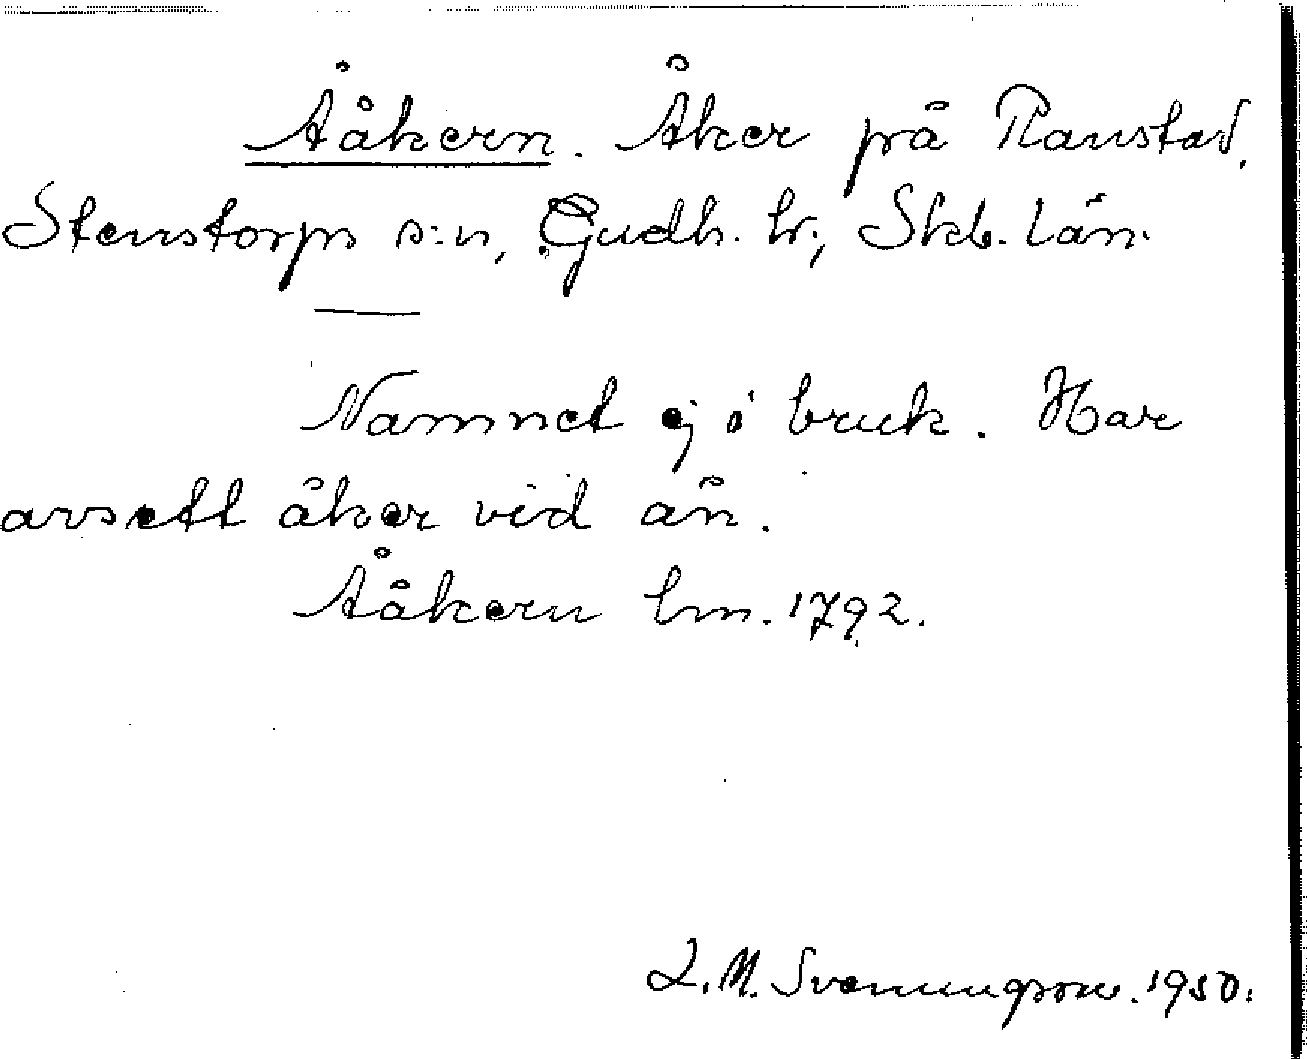 Åäkern. Åker på Ranstad,
Stenstorps s:n, Gudh. hr., Skb. län.
Namnet ej i bruk. Har
avsett åker vid ån.
Ååkern lm. 1792.
L.M. Svenungsson. 1950.